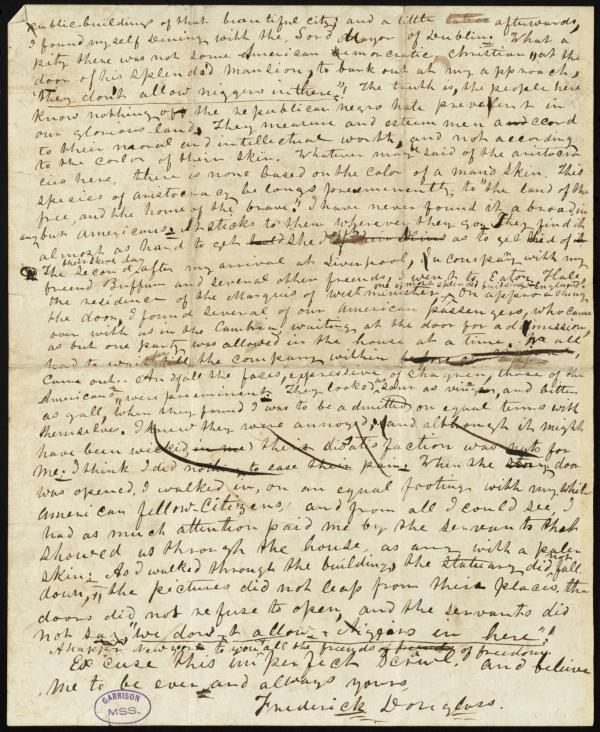 public buildings of that beautiful city, and a little afterwards,
I found myself dining with the Lord Mayor of Dublin. What a
pity there was not some American democratic Christian, at the
door of his splendid mansion, to bark out at my approach,
"They dont allow niggers in there"! The truth is, the people here
know nothing of the republican negro hate prevalent in
our glorious land. They measure and esteem men accord
to their moral and intellectual worth, and not according
to the color of their skin. Whatever may said of the aristocra
cies here, there is none based on the color of a mans skin. This
species of aristocracy belongs preeminently, to "the land of the
free, and the home of the brave." I have never found it abroad, in
any but Americans. It sticks to them wherever they go. They find it
almost as hard to get shed as to get rid of
The Second day after my arrival at Liverpool, in company with my
friend Buffum and several other friends, I went to Eaton Hall
the residence of the Marquis of Westminster, one of most splendid buildings in England. On approaching
the door, I found several of our American passengers, who came
over with us in the Cambria, waiting at the door for admission,
as but one party was allowed in the house at a time. We all
had to wait till the company within
came out. And of all the faces, expressive of chagrin, those of the
Americans were preeminent. They looked as sour as vinegar, and bitter
as gall, when they found I was to be admitted on equal terms with
themselves. I knew they were annoyed, and although it might
have been wicked in me their disatisfaction was for
me. I think I did nothing to ease their pain. When the door
was opened, I walked in, on an equal footing with my white
American fellow-Citizens, and from all I could see, I
had as much attention paid me by the servants that
showed us through the house, as any with a paler
skin. As I walked through the building, the statuary did not fall
down, the pictures did not leap from their places, the
doors did not refuse to open, and the servants did
not say, "we don't allow Niggers in here"!
A happy new year to you, all the friends of freedom.
Excuse this imperfect scrawl, and believe
me to be ever and always yours,
Frederick Douglass.
GARRISON
MSS.